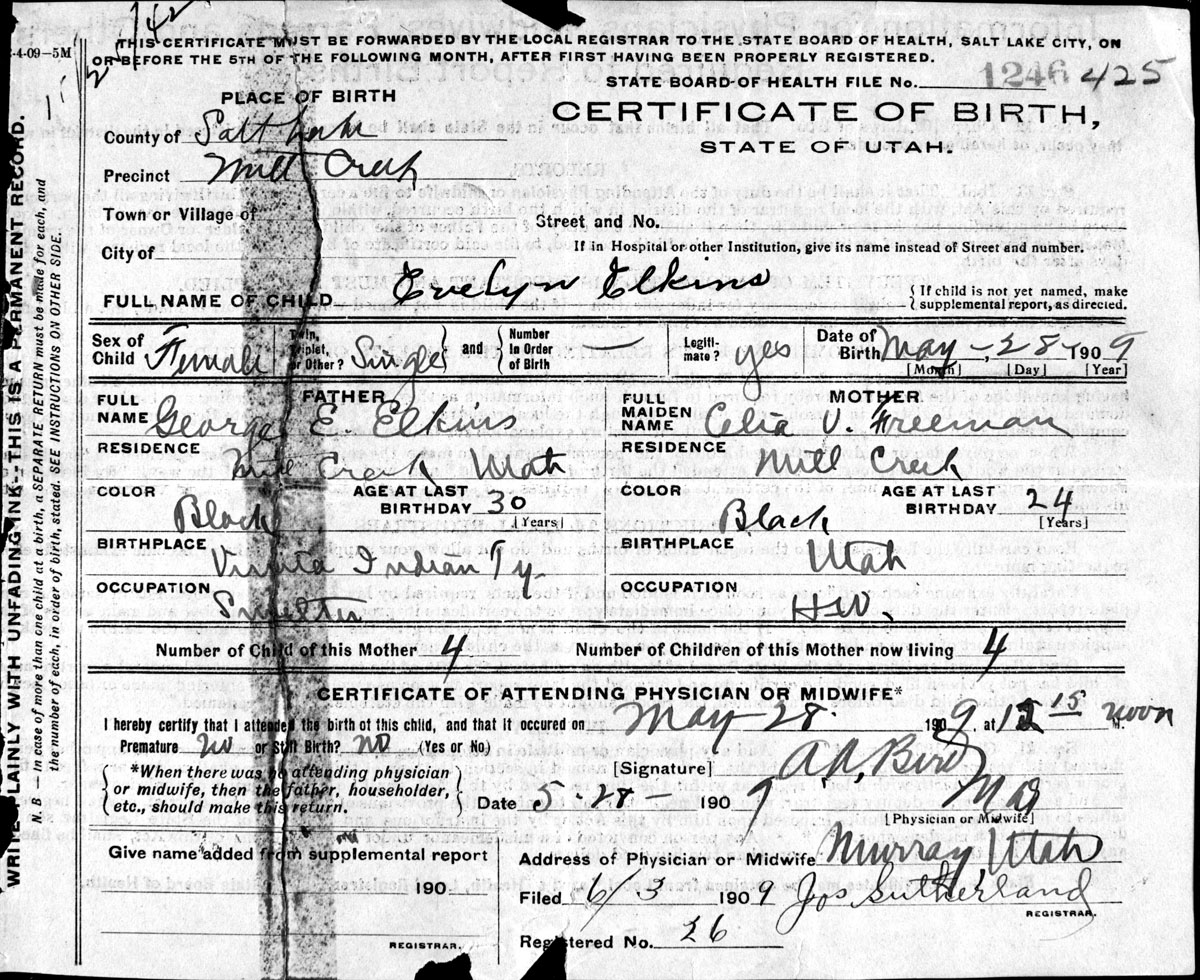 142
-4-09-5M
THIS CERTIFICATE MUST BE FORWARDED BY THE LOCAL REGISTRAR TO THE STATE BOARD OF HEALTH, SALT LAKE CITY, ON
OR BEFORE THE 5TH OF THE FOLLOWING MONTH, AFTER FIRST HAVING BEEN PROPERLY REGISTERED.
STATE BOARD OF HEALTH FILE No. 1246 425
PLACE OF BIRTH
CERTIFICATE OF BIRTH,
STATE OF UTAH.
County of Salt Lake
Precinct Mill Creek
Town or Village of
Street and No.
City of
If in Hospital or other Institution, give its name instead of Street and number.
FULL NAME OF CHILD Evelyn Elkins
{ If child is not yet named, make
supplemental report, as directed.
Sex of Child Female
Twin, Triplet, or Other? Single } and { Number In Order of Birth —
Legiti-mate? yes
Date of Birth May - 28 - 1909
[Month] [Day] [Year]
FATHER
FULL NAME George E. Elkins
MOTHER
FULL MAIDEN NAME Celia V. Freeman
RESIDENCE Mill Creek Utah
RESIDENCE Mill Creek
COLOR Black
AGE AT LAST BIRTHDAY 30 [Years]
COLOR Black
AGE AT LAST BIRTHDAY 24 [Years]
BIRTHPLACE Vinita Indian Ty.
BIRTHPLACE Utah
OCCUPATION Smelter
OCCUPATION H.W.
Number of Child of this Mother 4
Number of Children of this Mother now living 4
CERTIFICATE OF ATTENDING PHYSICIAN OR MIDWIFE*
I hereby certify that I attended the birth of this child, and that it occured on May - 28. 1909, at 12 15 noon M.
Premature no or Still Birth? no (Yes or No)
{ *When there was no attending physician
or midwife, then the father, householder,
etc., should make this return. }
[Signature] A. A. Bird
Date 5 - 28 - 1909
MD
[Physician or Midwife]
Give name added from supplemental report
Address of Physician or Midwife Murray Utah
190
Filed 6/3 1909 Jos Sutherland
REGISTRAR.
REGISTRAR.
Registered No. 26
WRITE PLAINLY WITH UNFADING INK--THIS IS A PERMANENT RECORD.
N. B. — in case of more than one child at a birth, a SEPARATE RETURN must be made for each, and
the number of each, in order of birth, stated. SEE INSTRUCTIONS ON OTHER SIDE.